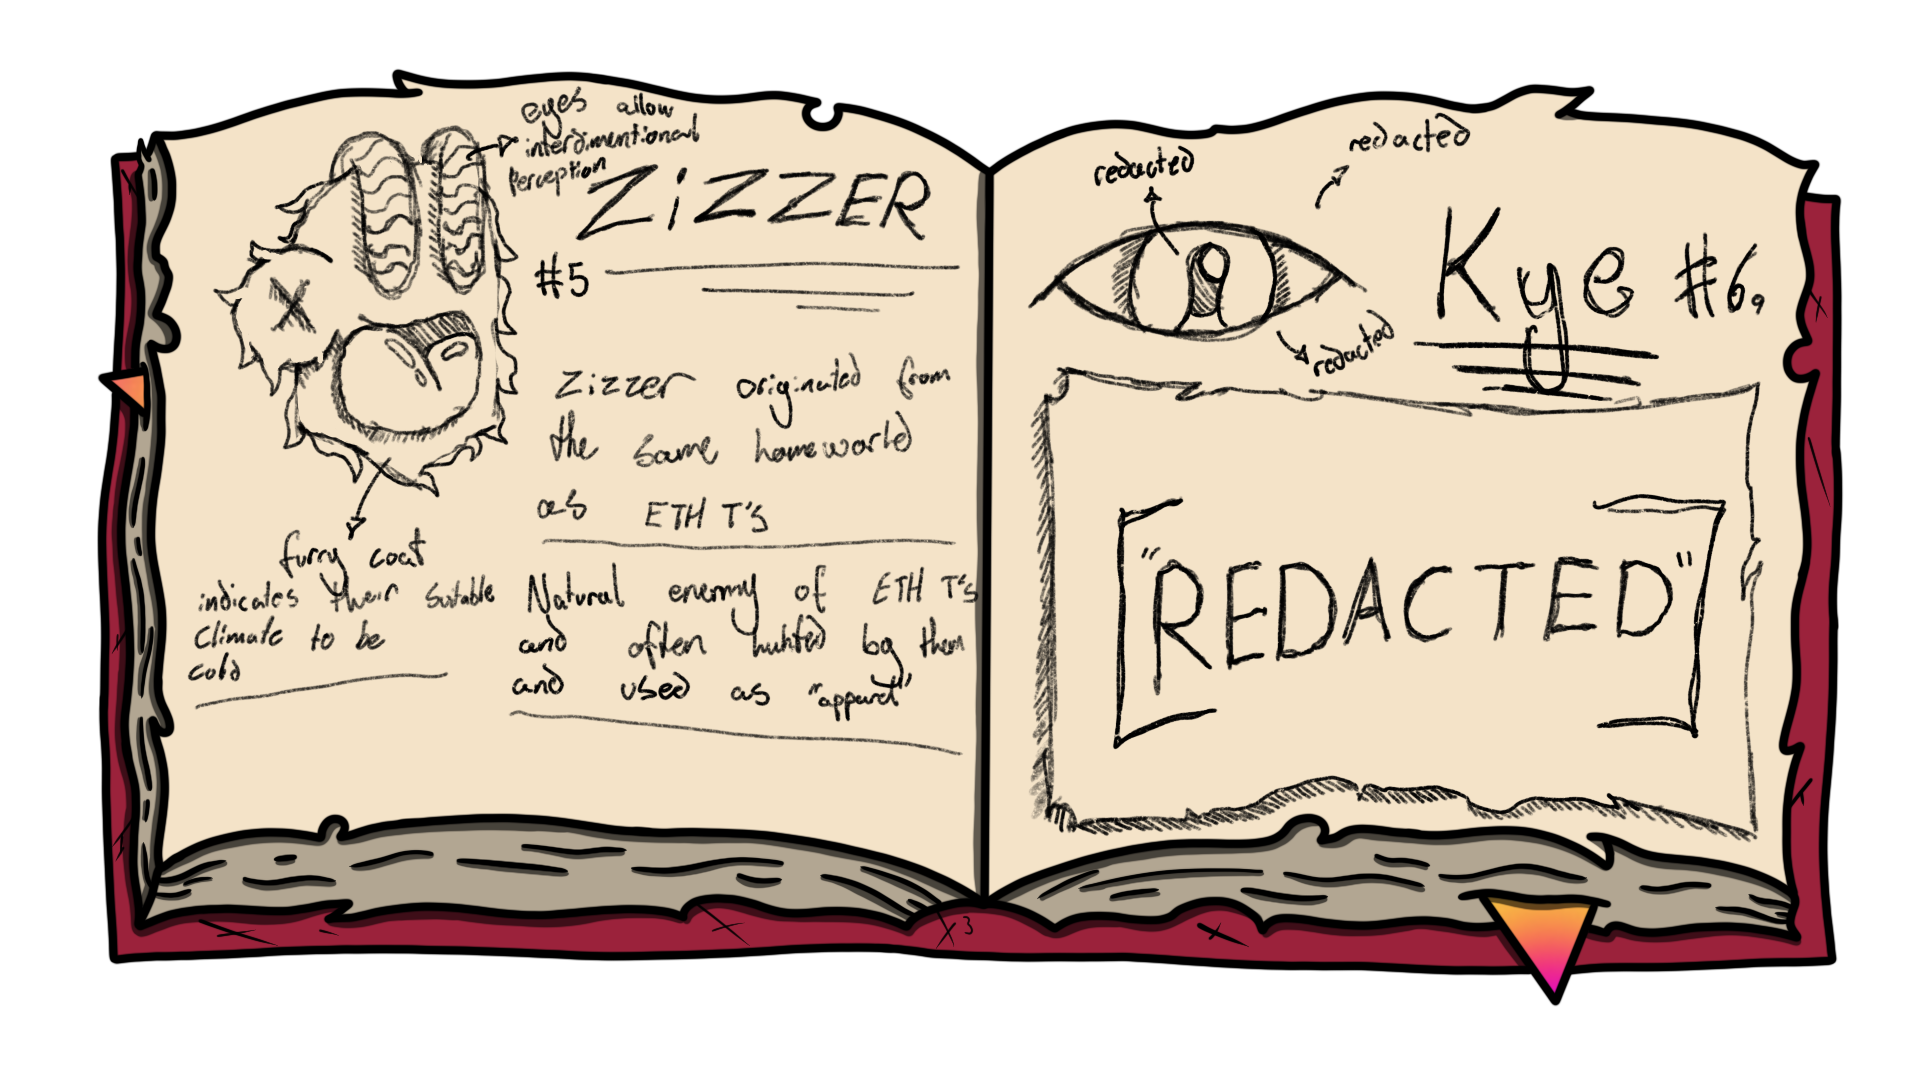 eyes allow
interdimentional
Perception
ZiZZER
#5
Zizzer originated from
the same homeworld
as ETH T's
furry coat
indicates their suitable
Climate to be
cold
Natural enemy of ETH T's
and often hunted by them
and used as "apparel"
redacted
redacted
Kye #6.
redacted
"REDACTED"
x3